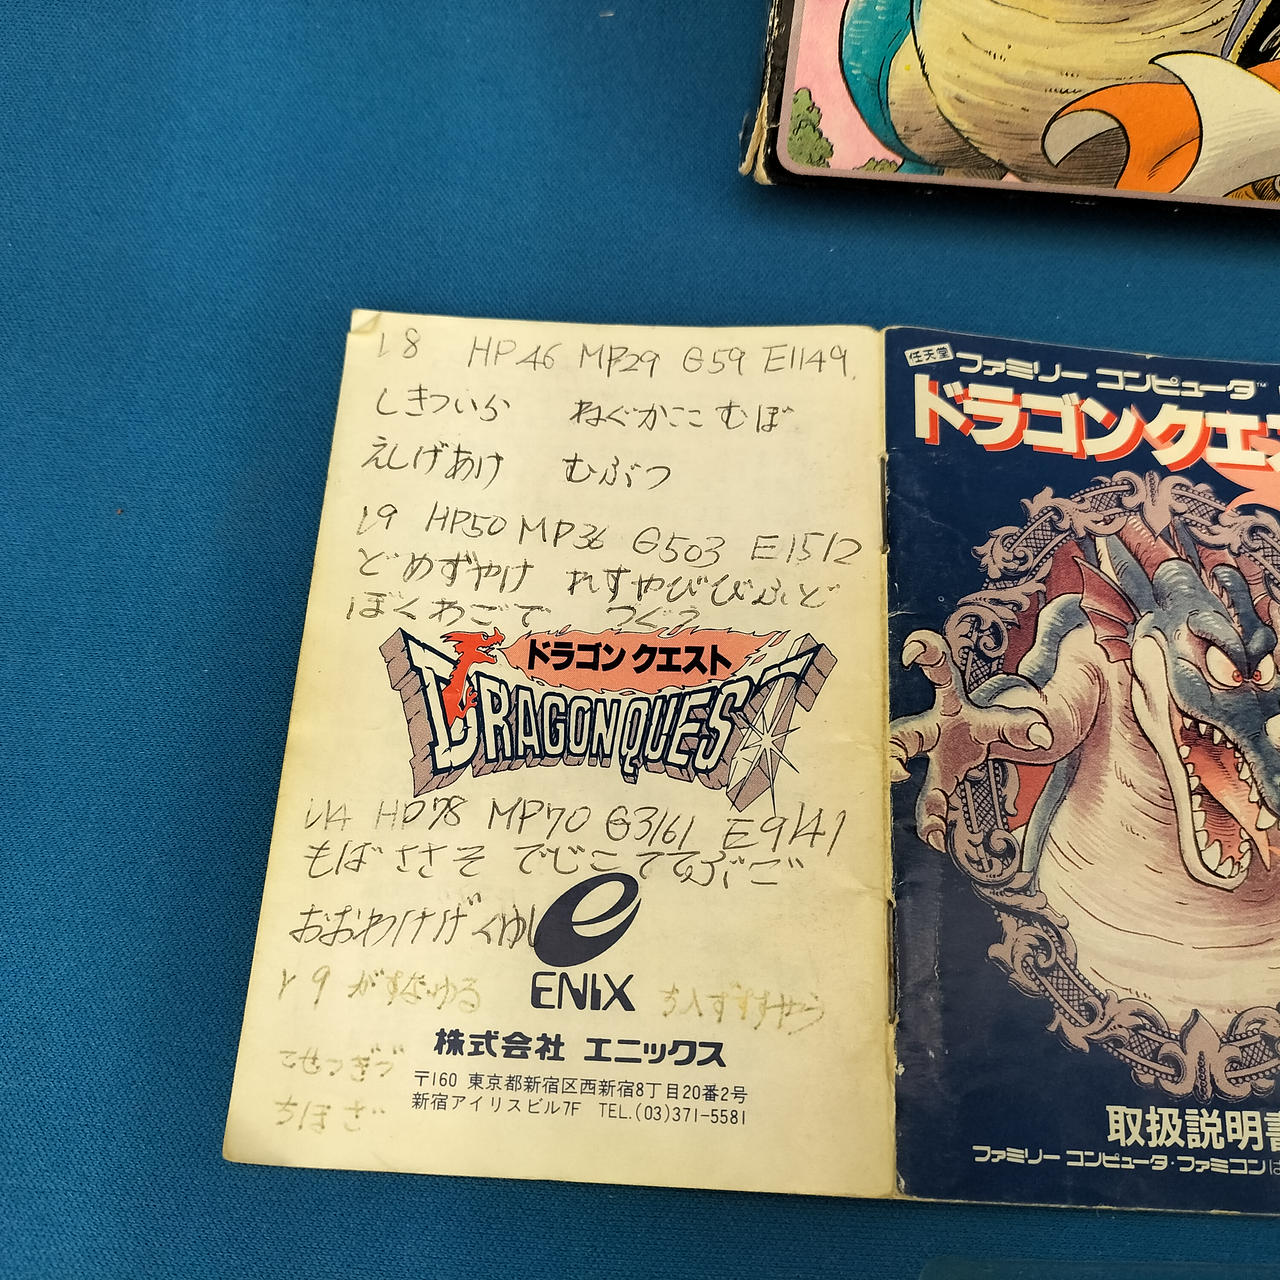 L8 HP46 MP29 G59 E1149.
しきついら ねぐかここむぼ
えしげあけ むぶつ
L9 HP50 MP36 G503 E1512
どめずやけ れすやびびふど
ぼくわごで つぐう
ドラゴン クエスト
DRAGON QUEST
L14 HP78 MP70 G3161 E9141
もばささそ でじこててぶご
おおわけげ くゆし
e
L9 がすなゆる
ENIX
てせつぎづ
ちほざ
株式会社 エニックス
〒160 東京都新宿区西新宿8丁目20番2号
新宿アイリスビル7F TEL.(03)371-5581
任天堂 ファミリー コンピュータ™
ドラゴンクエス
取扱説明書
ファミリー コンピュータ・ファミコンは